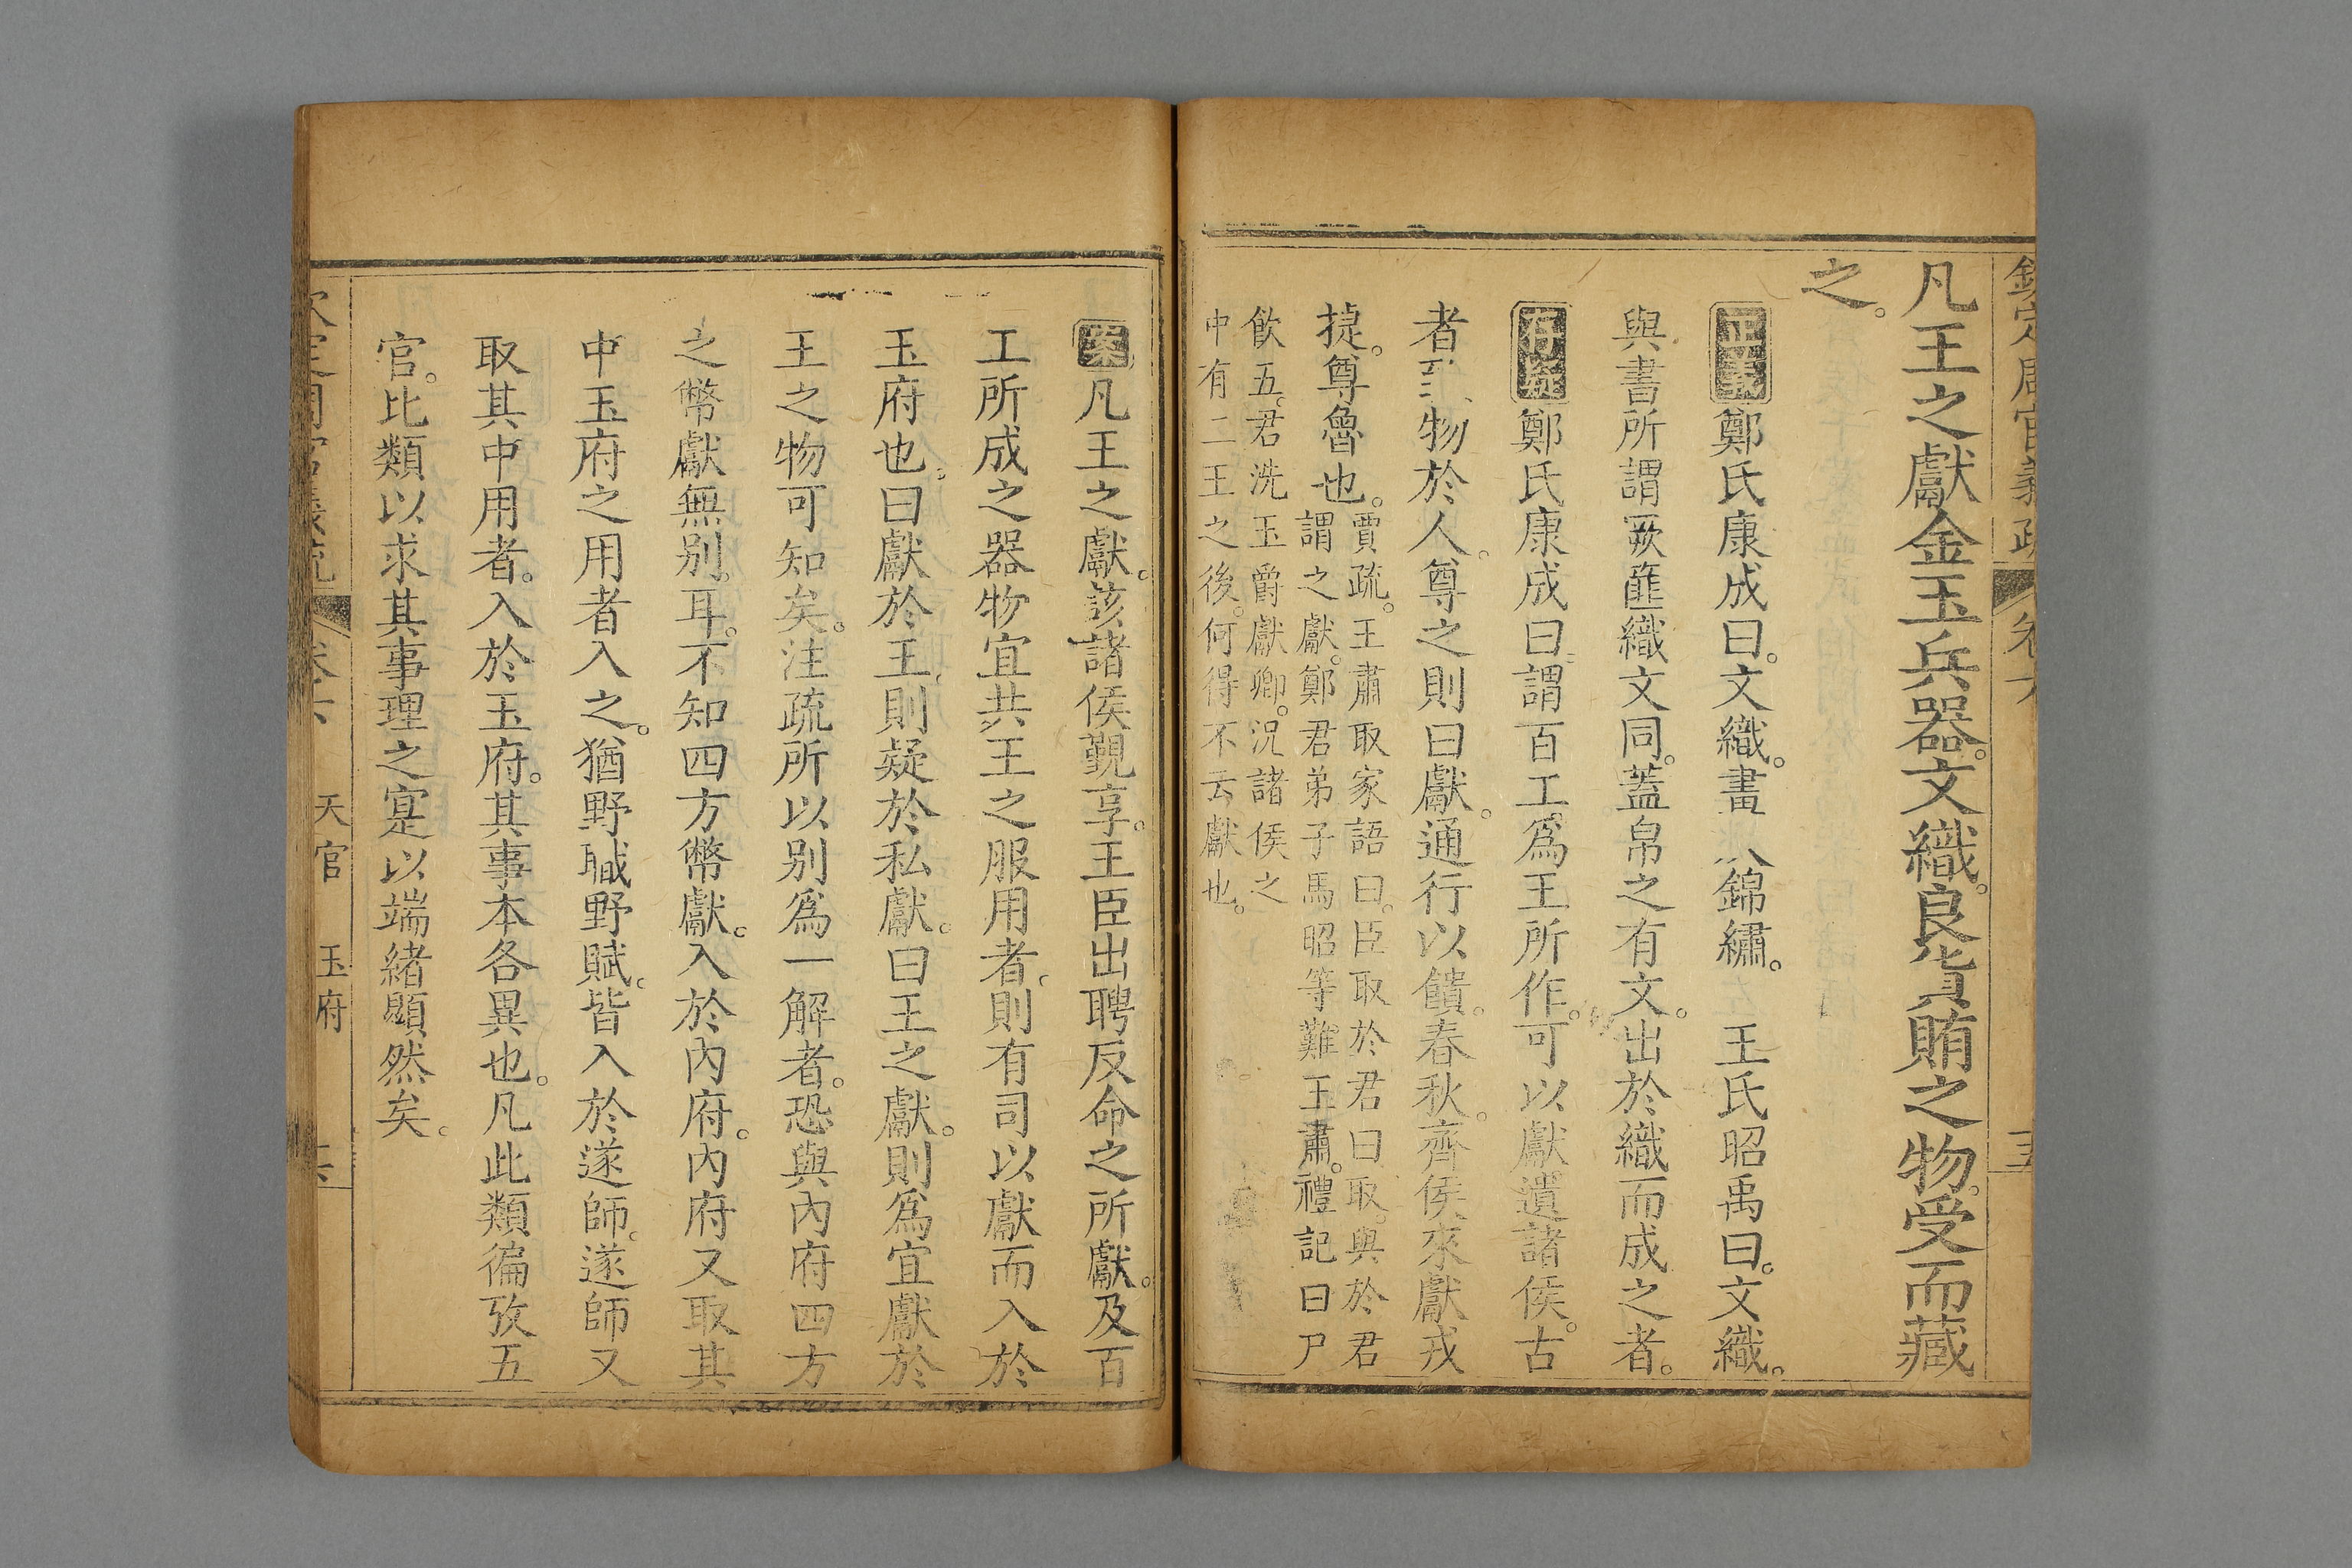 欽定周官義疏 卷六
凡王之獻金玉兵器。文織。良貨賄之物。受而藏
之。
正義鄭氏康成曰。文織。畫 錦繡。 王氏昭禹曰。文織。
與書所謂厥篚織文同。蓋帛之有文。出於織而成之者。
存疑鄭氏康成曰。謂百工。爲王所作。可以獻遺諸侯。古
者 物於人。尊之則曰獻。通行以饋。春秋。齊侯來獻戎
捷。尊魯也。賈疏。王肅取家語曰。臣取於君曰取。與於君
謂之獻。鄭君弟子馬昭等難王肅。禮記曰尸
飲五。君洗玉爵獻卿。況諸侯之
中有二王之後。何得不云獻也。
案凡王之獻。該諸侯覲享。王臣出聘反命之所獻。及百
工所成之器物宜共王之服用者。則有司以獻而入於
玉府也。曰獻於王。則疑於私獻。曰王之獻。則爲宜獻於
王之物可知矣。注疏所以別爲一解者。恐與內府四方
之幣獻無別。耳。不知四方幣獻。入於內府。內府又取其
中玉府之用者入之。猶野職野賦。皆入於遂師。遂師又
取其中用者。入於玉府。其事本各異也。凡此類徧攷五
官。比類以求其事理之寔以端緒顯然矣。
天官 玉府